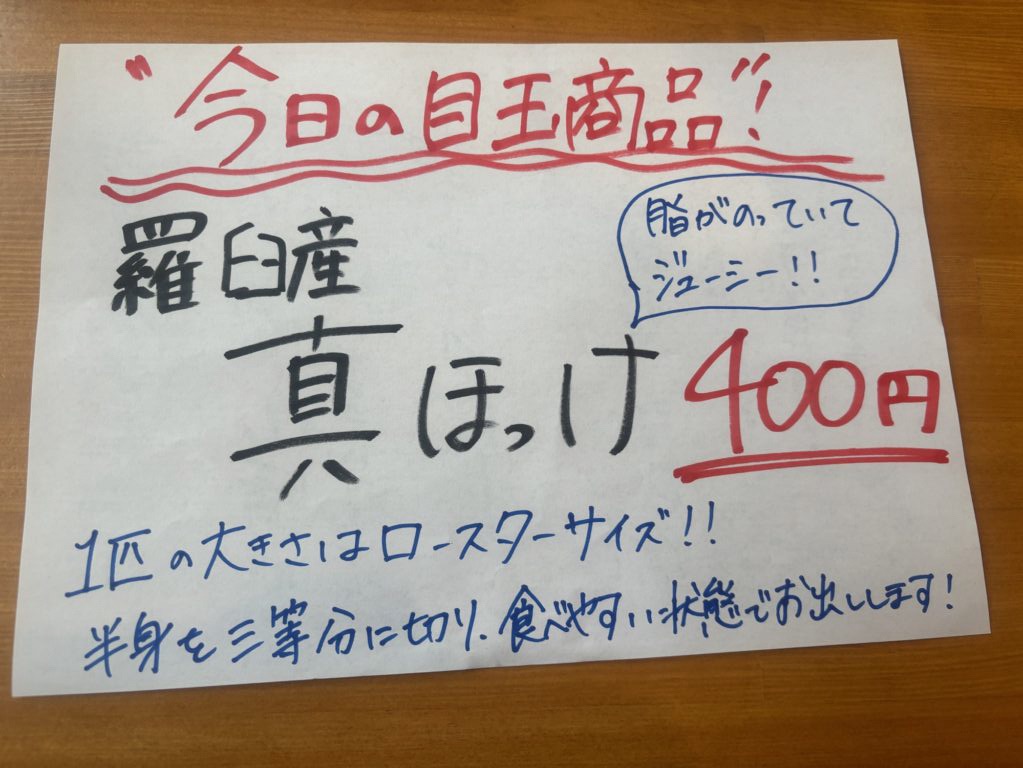 "今日の目玉商品"!
羅臼産
脂がのっていて
ジューシー!!
真ほっけ 400円
1匹の大きさはロースターサイズ!!
半身を三等分に切り、食べやすい状態でお出しします!